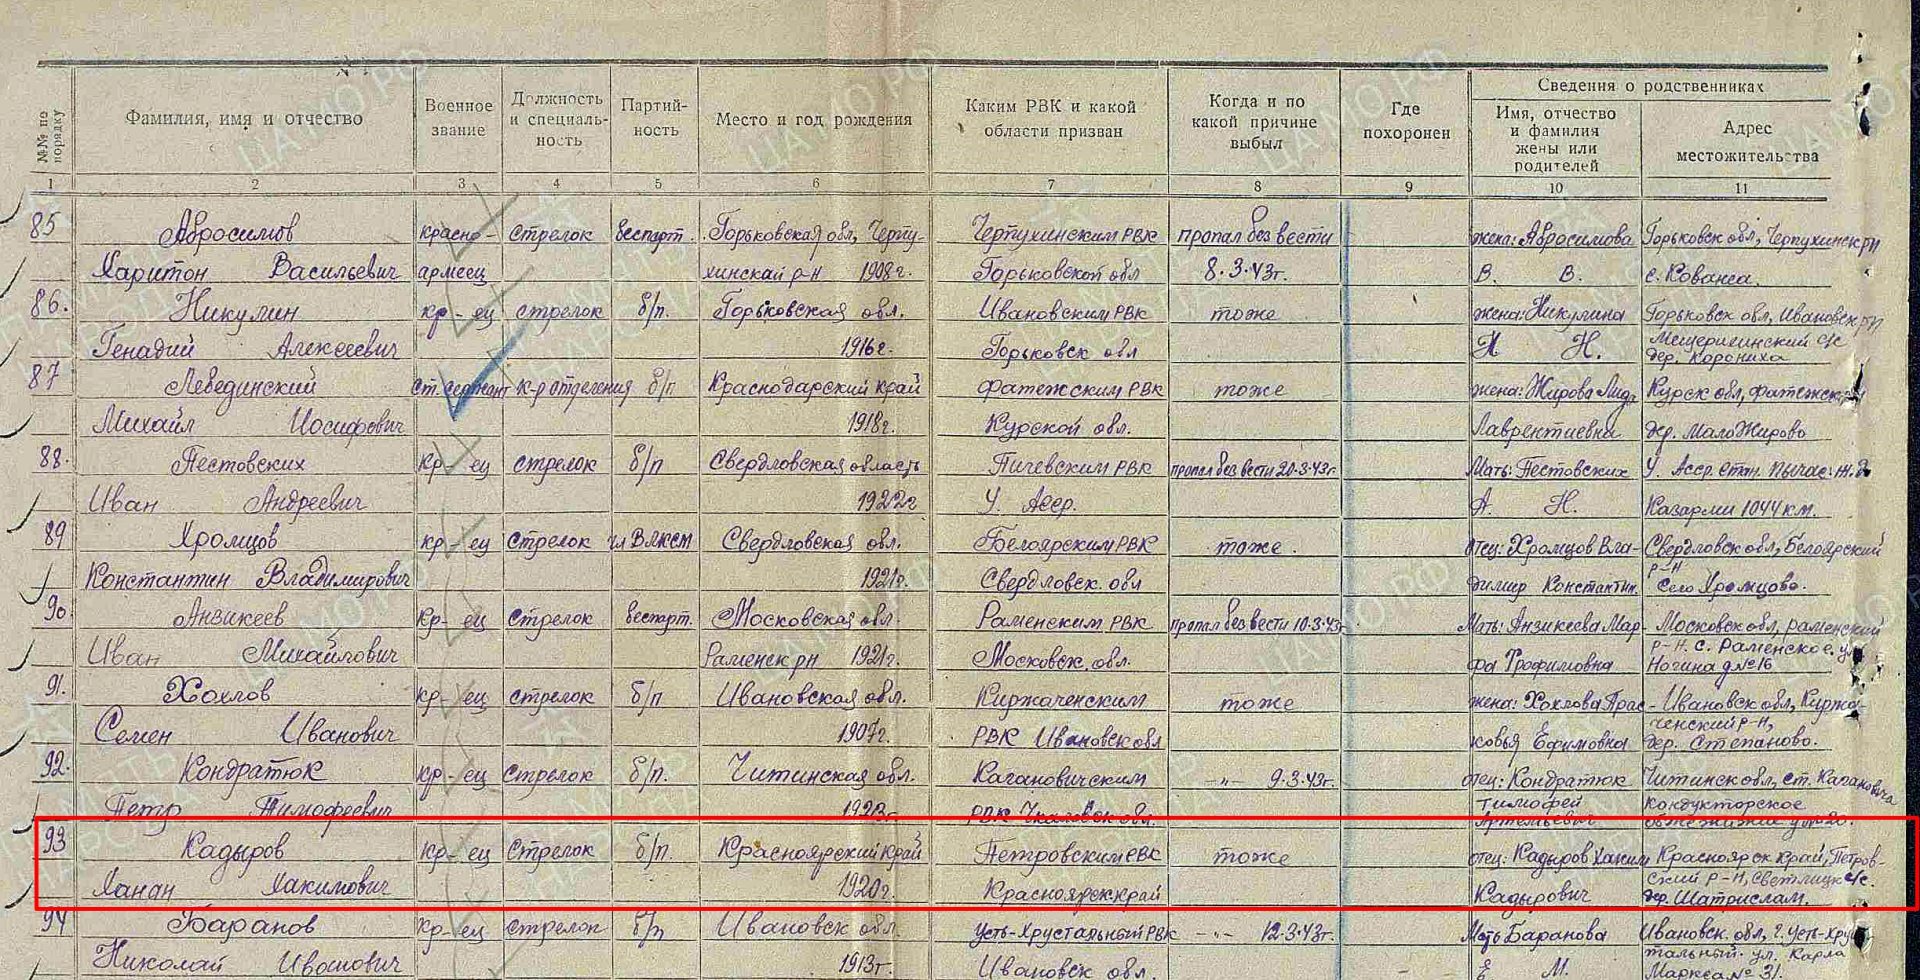 №№ по порядку | Фамилия, имя и отчество | Военное звание | Должность и специаль-ность | Партий-ность | Место и год рождения | Каким РВК и какой области призван | Когда и по какой причине выбыл | Где похоронен | Сведения о родственниках
Имя, отчество и фамилия жены или родителей | Адрес местожительства
1 2 3 4 5 6 7 8 9 10 11
85 Абросимов красно- стрелок беспарт. Горьковская обл, Черпу- Черпухинским РВК пропал без вести жена: Абросимова Горьковск обл, Черпухинск рн
Харитон Васильевич армеец хинский р-н 1908г. Горьковской обл 8.3.43г. В. В. с.
86. Никулин кр-ец стрелок б/п. Горьковская обл. Ивановским РВК тоже жена: Никулина Горьковск обл, Ивановск рн
Генадий Алексеевич 1916г. Горьковск обл Н. Мещерихинский с/с
дер. Корониха
87 Лебединский ст. сержант к-р отделения б/п Краснодарский край Фатежским РВК тоже жена: Жирова Лида Курск обл, Фатежский
Михаил Иосифович 1918г. Курской обл. Лаврентиевна дер. МалоЖирово
88. Пестовских кр-ец стрелок б/п Свердловская область Пичевским РВК пропал без вести 20.3.43г. Мать: Пестовских У. Асср. стан. Пычас ж.д
Иван Андреевич 1922г У. Асср. А. Н. Казарми 1044 км.
89 Хромцов кр-ец стрелок чл ВЛКСМ Свердловская обл. Белоярским РВК тоже. отец: Хромцов Вла- Свердловск обл, Белоярский
р-н
Константин Владимирович 1921г. Свердловск. обл димир Константин. Село Хромцово.
90 Анзикеев кр-ец стрелок беспарт. Московская обл. Раменским РВК пропал без вести 10.3.43г Мать: Анзикеева Мар- Московск обл, раменский
Иван Михайлович Раменск рн 1921г. Московск. обл. фа Трофимовна р-н. с. Раменское. ул
Ногина д№16
91. Хохлов кр-ец стрелок б/п Ивановская обл. Киржаченским тоже жена: Хохлова Прас- Ивановск обл, Киржа-
Семен Иванович 1907г. РВК Ивановск обл ковья Ефимовна ченский р-н,
дер. Степаново.
92. Кондратюк кр-ец стрелок б/п. Читинская обл. Кагановичским -"- 9.3.43г. отец: Кондратюк Читинск обл, ст. Кагановича
Петр Тимофеевич 1923г. РВК Чкаловск обл. Тимофей Кондукторское
Артемьевич общежитие №20.
93 Кадыров кр-ец Стрелок б/п. Красноярский край Петровским РВК тоже отец: Кадыров Хаким Красноярск край, Петров-
Ханан Хакимович 1920г. Красноярск край Кадырович ский р-н, Светлицк с/с.
дер. Шатрислам.
94 Баранов кр-ец стрелок б/п Ивановск обл. Усть-Хрустальный РВК -"- 12.3.43г. Мать Баранова Ивановск. обл, г. Усть-Хрус
Николай Иванович 1913г. Ивановск обл. М. тальный. ул. Карла
Маркса № 31.